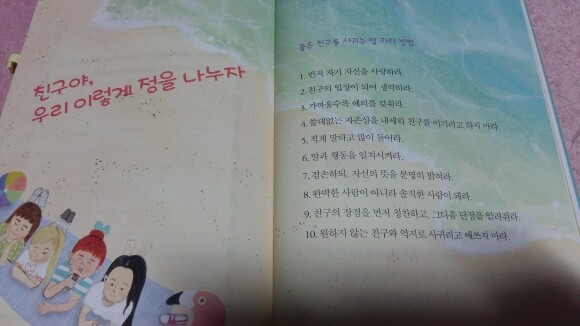 친구야,
우리 이렇게 정을 나누자
좋은 친구를 사귀는 열 가지 방법
1. 먼저 자기 자신을 사랑하라.
2. 친구의 입장이 되어 생각하라.
3. 가까울수록 예의를 갖춰라.
4. 쓸데없는 자존심을 내세워 친구를 이기려고 하지 마라.
5. 적게 말하고 많이 들어라.
6. 말과 행동을 일치시켜라.
7. 겸손하되, 자신의 뜻을 분명히 밝혀라.
8. 완벽한 사람이 아니라 솔직한 사람이 돼라.
9. 친구의 장점을 먼저 칭찬하고, 그다음 단점을 알려줘라.
10. 원하지 않는 친구와 억지로 사귀려고 애쓰지 마라.